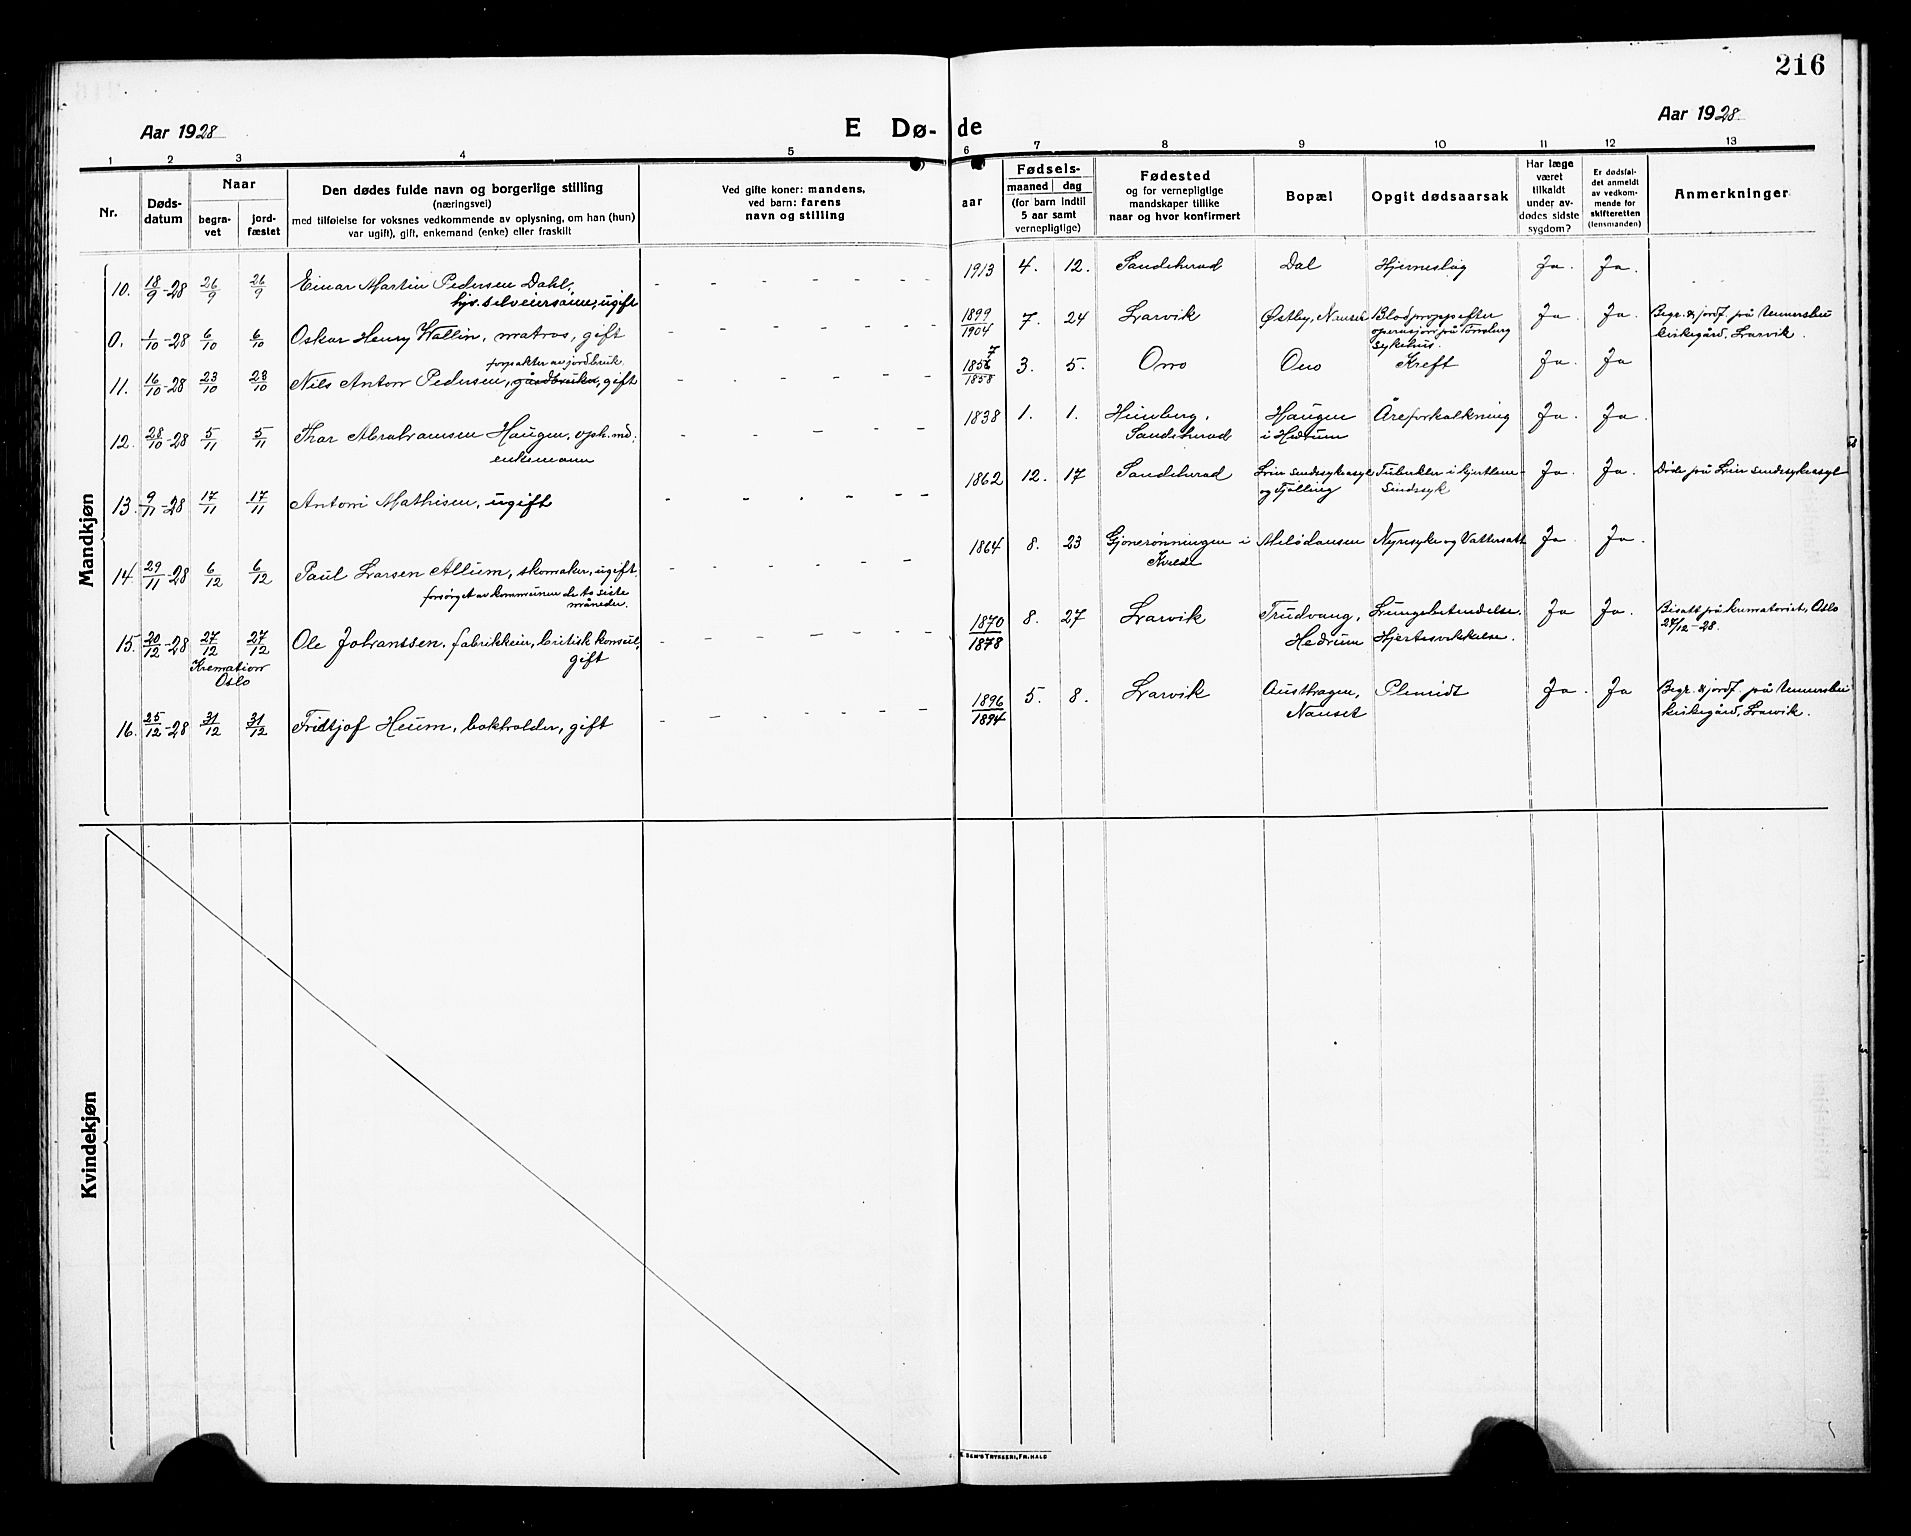 216
Aar 1928
E Dø-de
Aar 1928.
1 2 3 4 5 6 7 8 9 10 11 12 13
Nr.
Døds-
datum
Naar
begra-
vet
jord-
fæstet
Den dødes fulde navn og borgerlige stilling
(næringsvei)
med tilføielse for voksnes vedkommende av oplysning, om han (hun)
var ugift), gift, enkemand (enke) eller fraskilt
Ved gifte koner: mandens,
ved barn: farens
navn og stilling
aar
Fødsels-
maaned dag
(for barn indtil
5 aar samt
vernepligtige)
Fødested
og for vernepligtige
mandskaper tillike
naar og hvor konfirmert
Bopæl
Opgit dødsaarsak
Har læge
været
tilkaldt
under av-
dødes sidste
sygdom?
Er dødsfal-
det anmeldt
av vedkom-
mende for
skifteretten
(lensmanden)
Anmerkninger
Mandkjøn
10. 18/9-28 26/9 26/9 Einar Martin Pedersen Dahl, - - - - - - - 1913 4. 12. Sandeherad Dal Hjerneslag Ja. Ja.
hjv. selveiersønn, ugift
0. 1/10-28 6/10 6/10 Oskar Henry Wallin, matros, gift - - - - - - - 1899/1904 7. 24 Larvik Østby, Nanset Blodpropp efter Ja. Ja. Begr. & jordf. på Undersbo
operasjon på Tønsberg kirkegård, Larvik.
sykehus.
forpakter av jordbruk
11. 16/10-28 23/10 28/10 Nils Anton Pedersen, gårdbruker, gift - - - - - - - 1857/1858 3. 5. Ono Ono Kreft Ja. Ja
12. 28/10-28 5/11 5/11 Thor Abrahamsen Haugen, oph.md. - - - - - - - 1838 1. 1. Himberg, Haugen Åreforkalkning Ja. Ja.
enkemann Sandeherad i Hedrum
13. 9/11-28 17/11 17/11 Anton Mathisen, ugift - - - - - - - 1862 12. 17 Sandeherad Lien sindssykeasyl Tuberkler i hjertene Ja. Ja. Døde på Lien sindssykeasyl
og Tjølling Sindssyk
14. 29/11-28 6/12 6/12 Paul Larsen Allum, skomaker, ugift. - - - - - - - 1864 8. 23 Gjonerønningen i Melødansen Nyresyke og Vattersott Ja. Ja.
forsørget av kommunen de to siste Kvelde
måneder.
15. 20/12-28 27/12 27/12 Ole Johanssen, fabrikkeier, britisk konsul, - - - - - - - 1870/1878 8. 27 Larvik Trudvang, Lungebetendelse. Ja Ja. Bisatt på krematoriet, Oslo
gift Hedrum Hjertesvekkelse. 27/12-28.
Kremation
Oslo
16. 25/12-28 31/12 31/12 Fridtjof Heum, bokholder, gift - - - - - - - 1896/1894 5. 8. Larvik Austhagen, Ja. Ja Begr. & jordf. på Undersbo
Nanset kirkegård, Larvik.
Kvindekjøn
TRYKKERI, FR.HALD